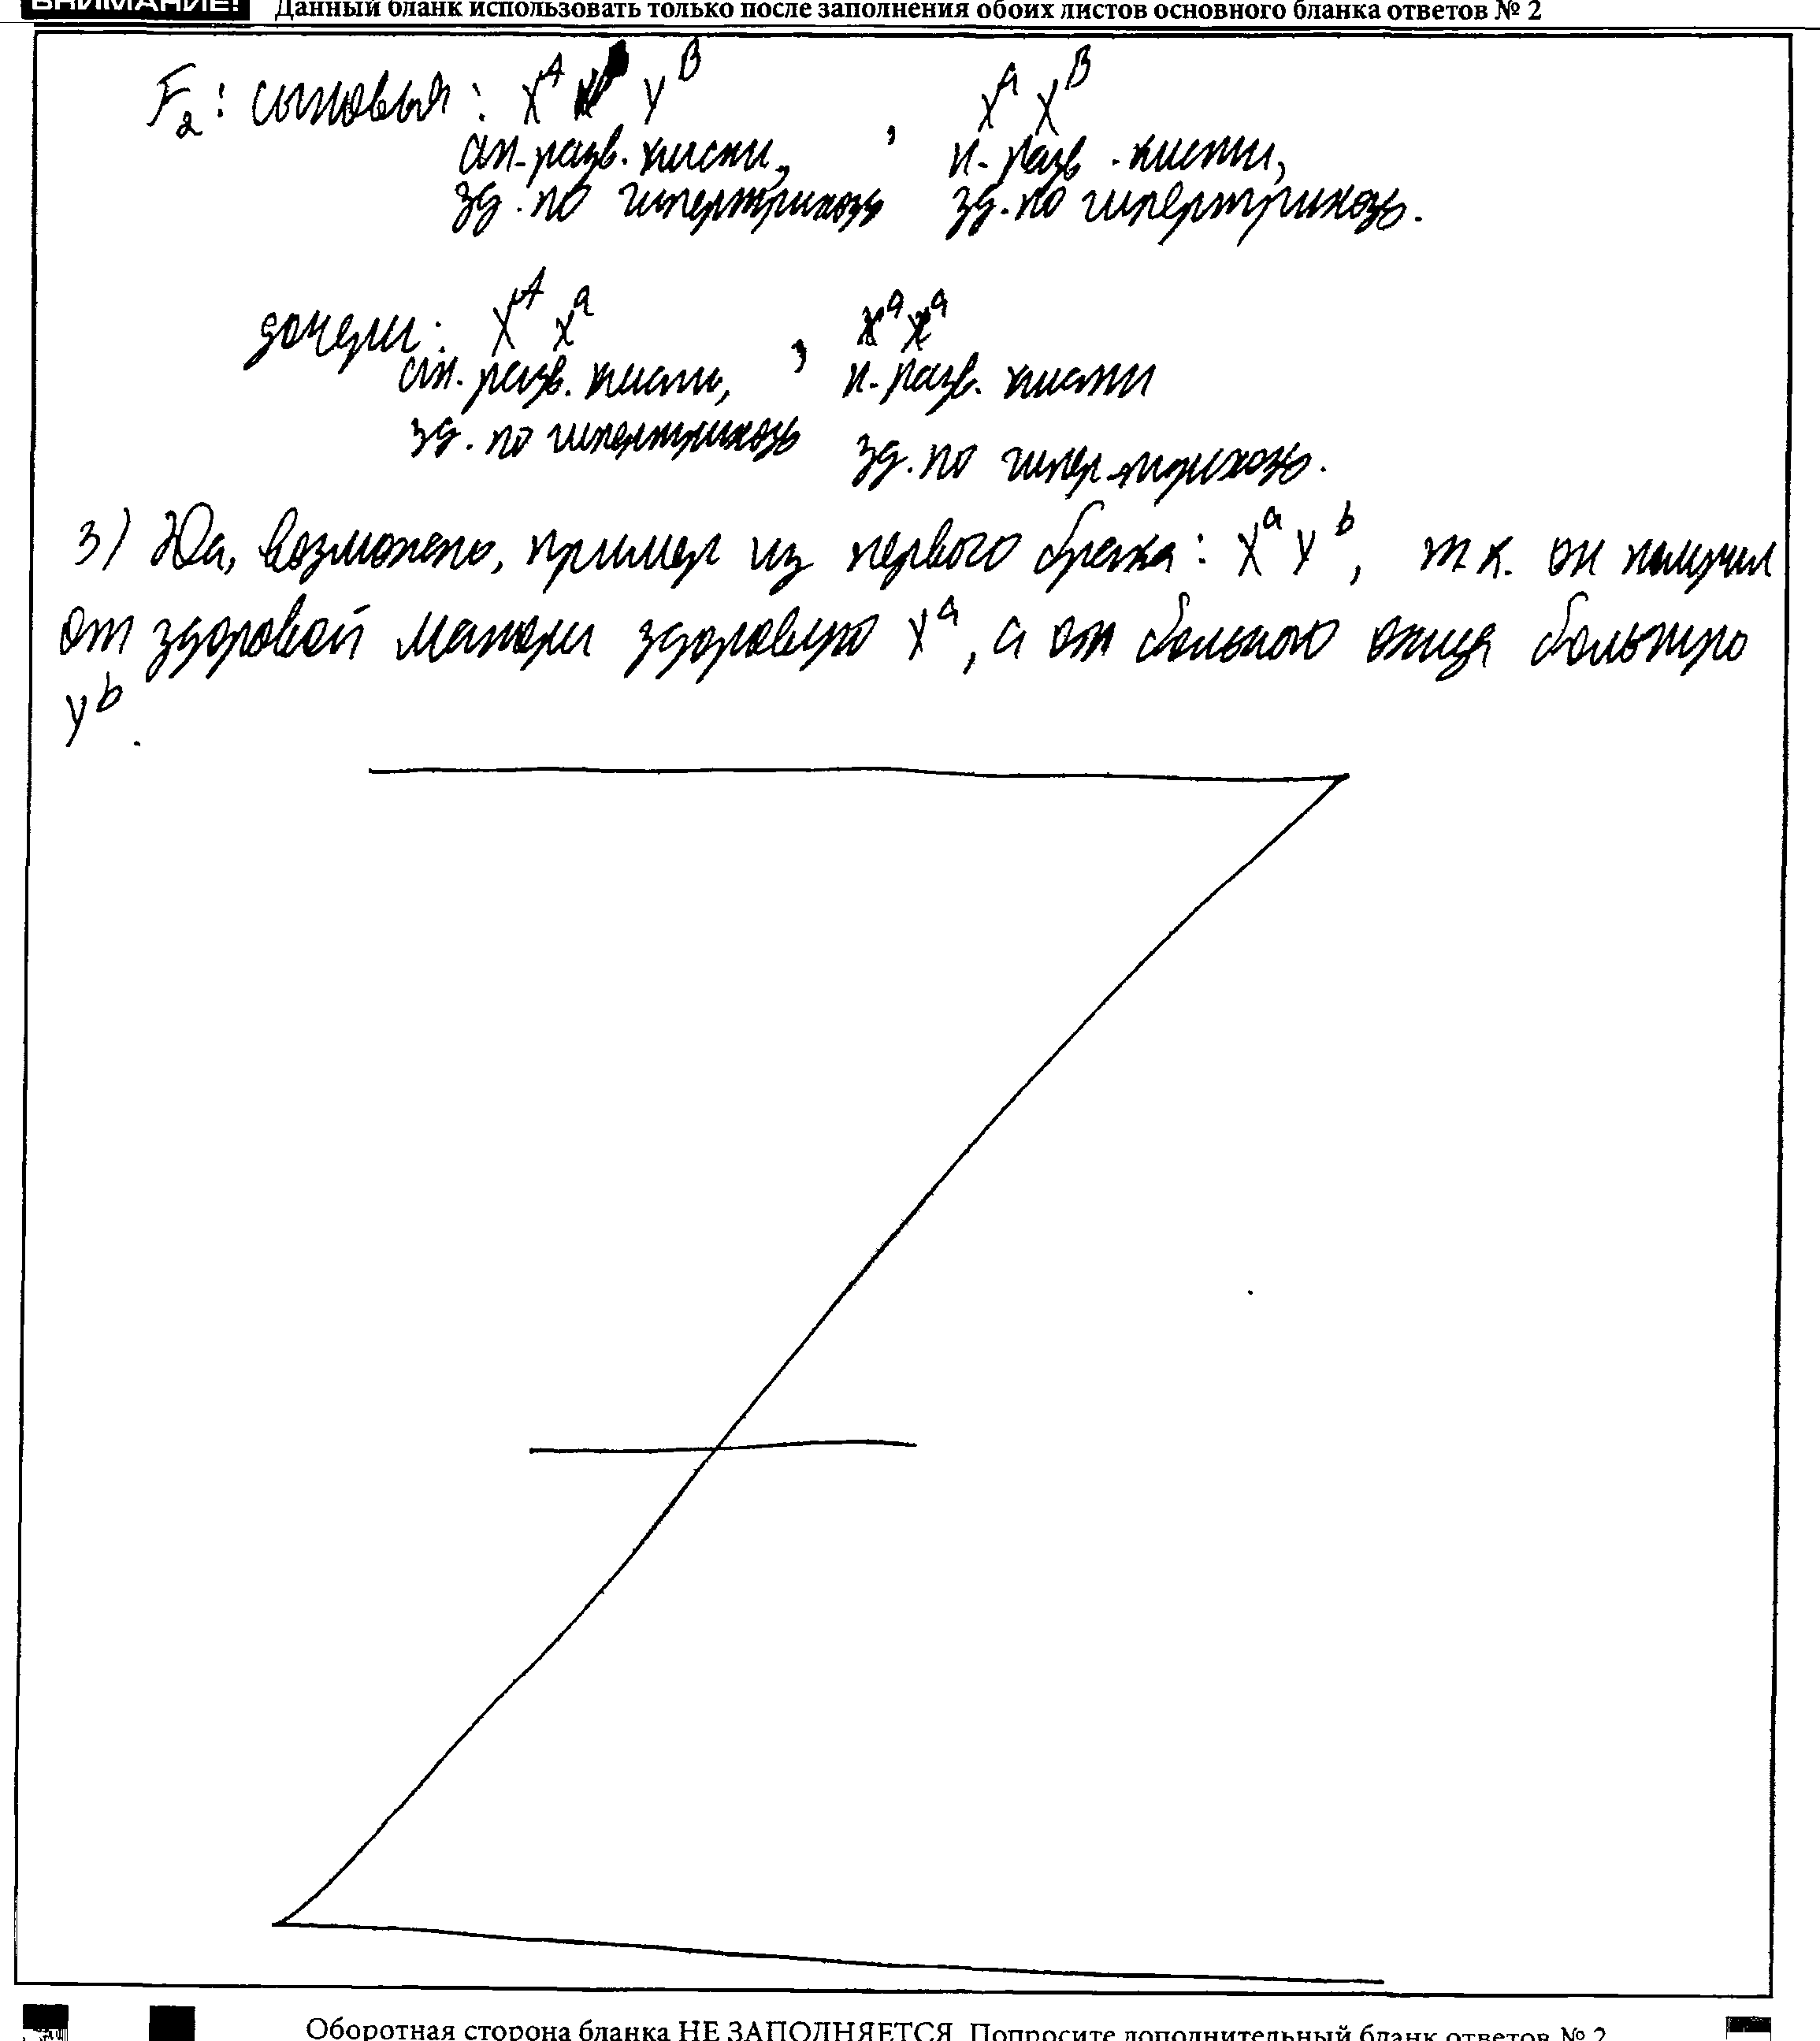 ВНИМАНИЕ! Данный бланк использовать только после заполнения обоих листов основного бланка ответов № 2
F₂: сыновья: Xᴬ Yᴮ , Xᵃ Xᴮ
ан. разв. кисти, н. разв. кисти,
зд. по гипертрихозу зд. по гипертрихозу.
дочери: Xᴬ Xᵃ , XᵃXᵃ
ан. разв. кисти, н. разв. кисти
зд. по гипертрихозу зд. по гипертрихозу.
3) Да, возможно, пример из первого брака: Xᵃ Yᵇ, т.к. он получил
от здоровой матери здоровую Xᵃ, а от больного отца больную
Yᵇ.
Оборотная сторона бланка НЕ ЗАПОЛНЯЕТСЯ. Попросите дополнительный бланк ответов № 2